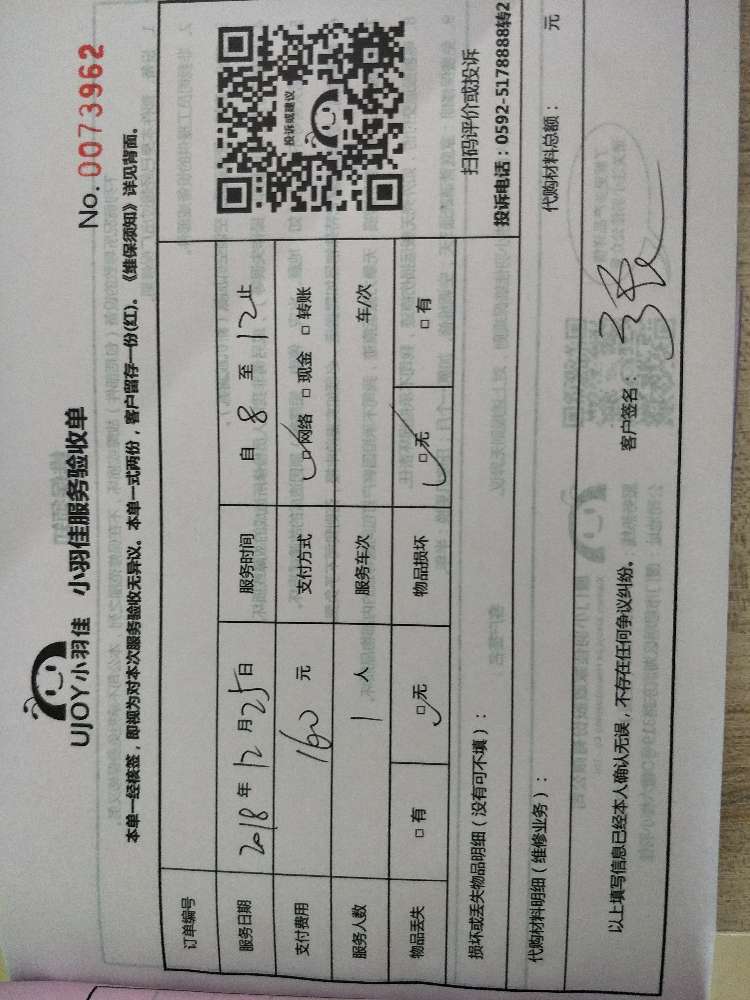 UJOY小羽佳 小羽佳服务验收单
No. 0073962
本单一经核签，即视为对本次服务验收无异议。本单一式两份，客户留存一份(红)。《维保须知》详见背面。
订单编号
服务日期 2018年12月25日 服务时间 自8至12止
支付费用 160元 支付方式 □网络 □现金 □转账
服务人数 1人 服务车次 车/次
物品丢失 □有 □无 物品损坏 □无 □有
投诉或建议
扫码评价或投诉
投诉电话：0592-5178888转2
损坏或丢失物品明细（没有可不填）：
代购材料明细（维修业务）： 代购材料总额： 元
以上填写信息已经本人确认无误，不存在任何争议纠纷。 客户签名：